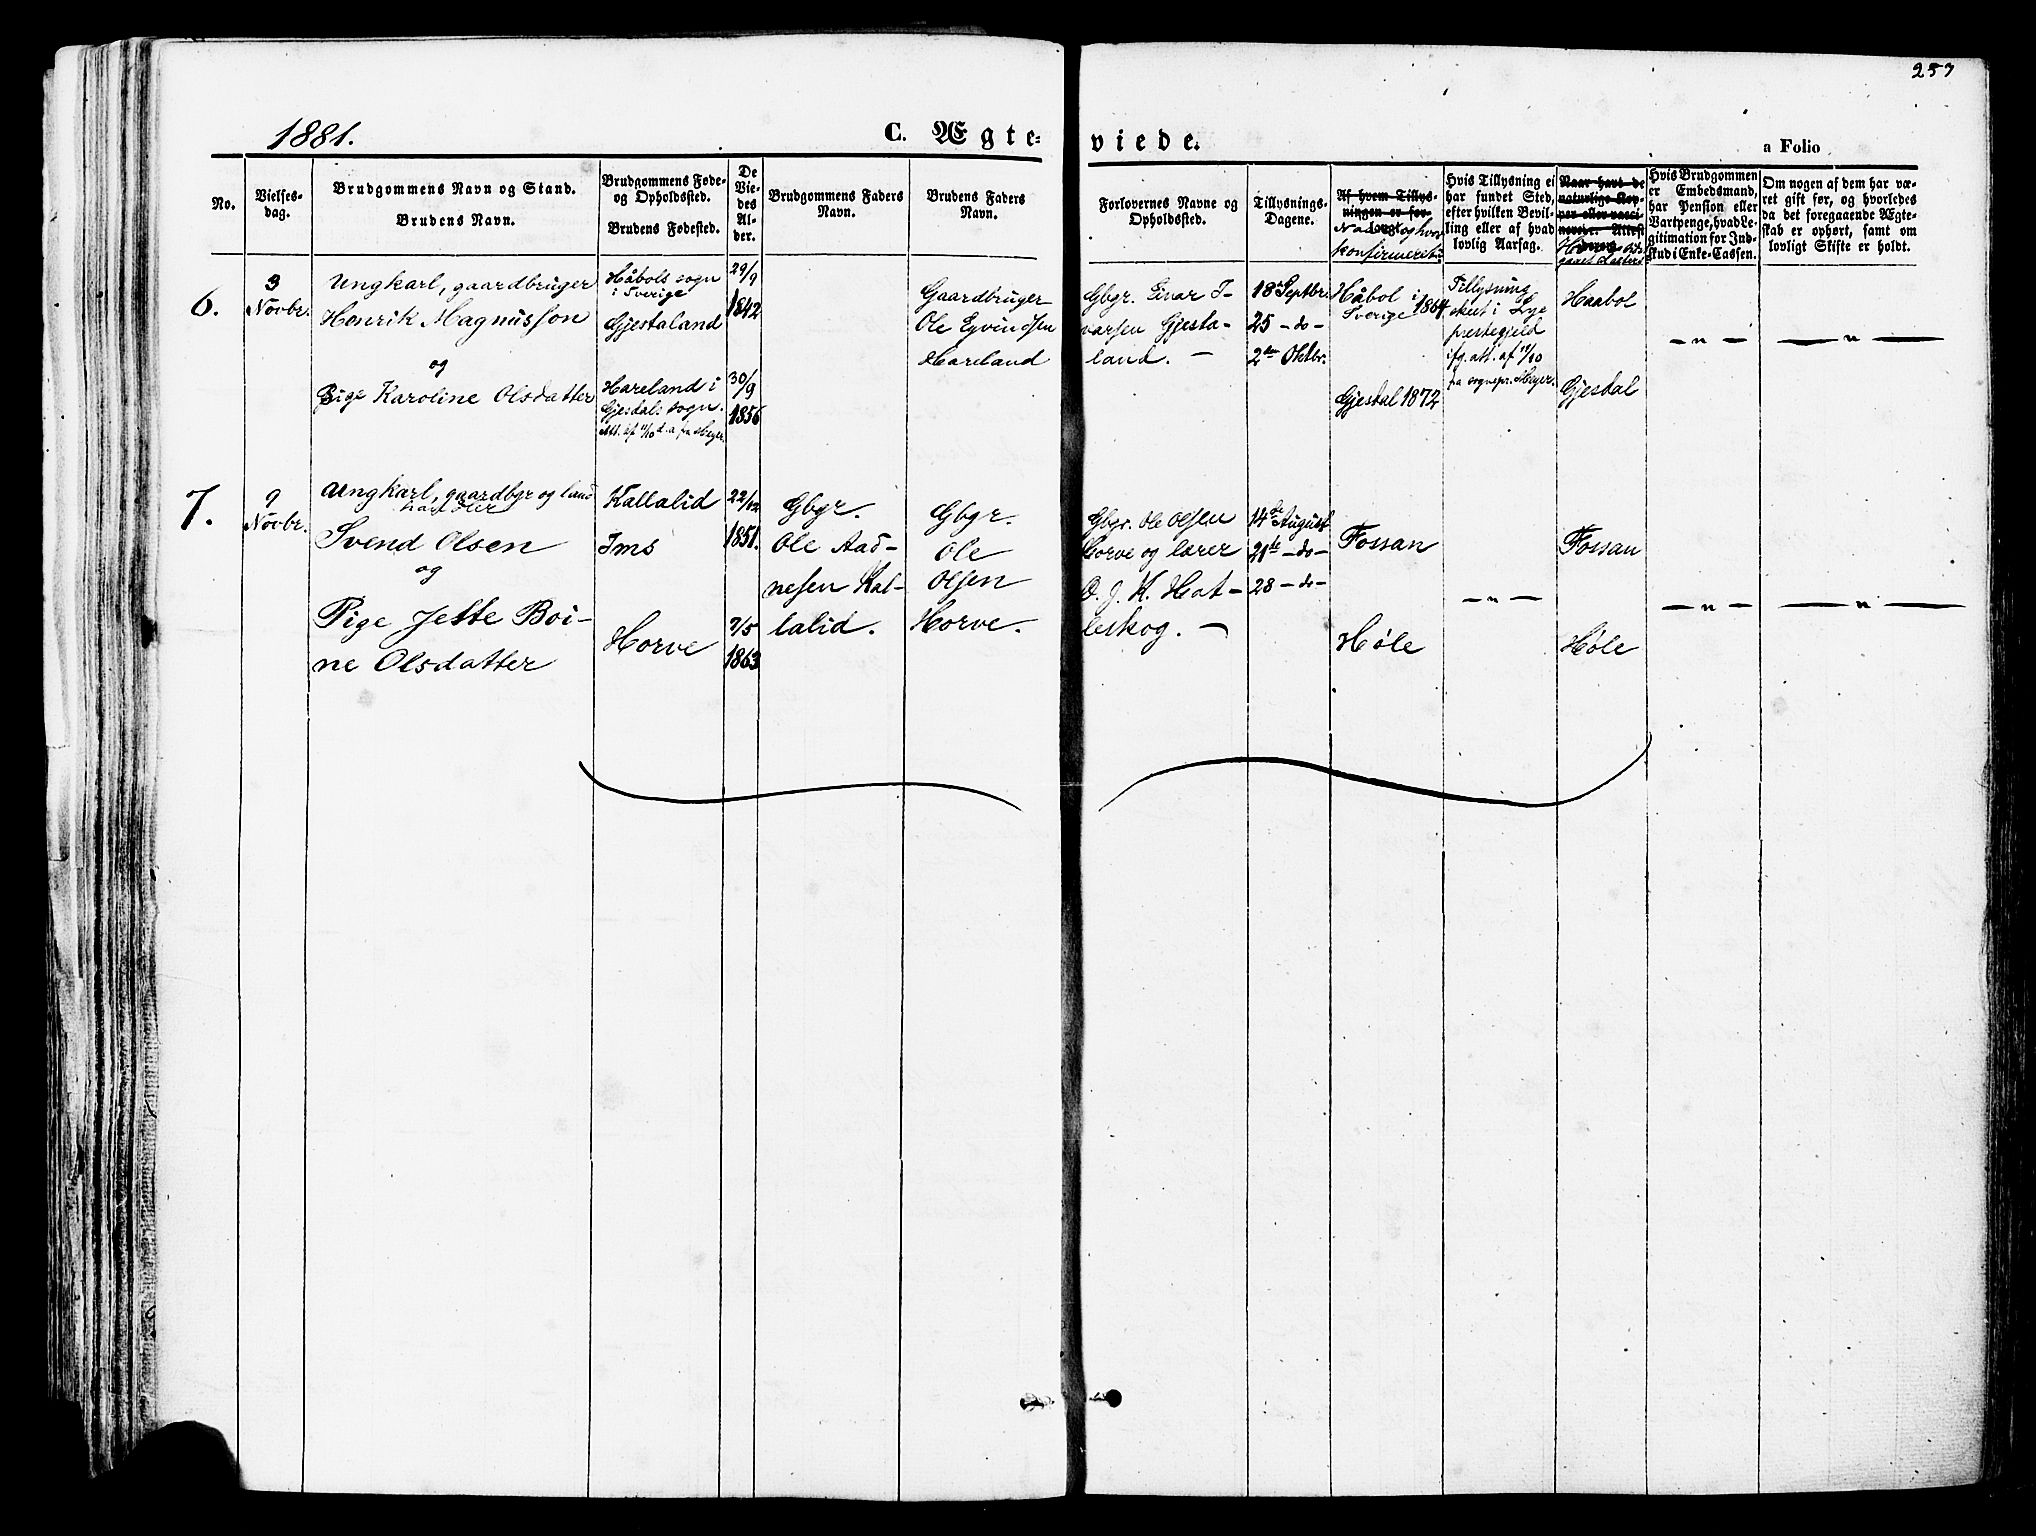 253
1881.
C. Ægte-
viede.
a Folio
No.
Vielses-
dag.
Brudgommens Navn og Stand.
Brudens Navn.
Brudgommens Føde-
og Opholdssted.
Brudens Fødested.
De
Vie-
des
Al-
der.
Brudgommens Faders
Navn.
Brudens Faders
Navn.
Forlovernes Navne og
Opholdssted.
Tillysnings-
Dagene.
Af hvem Tillys-
ningen er for-
langt
Naar og hvor
konfirmeret.
Hvis Tillysning ei
har fundet Sted,
efter hvilken Bevil-
ling eller af hvad
lovlig Aarsag.
Naar havt de
naturlige Kop-
per eller vacci-
nerede. Attest
Hvis Brudgommen
er Embedsmand,
har Pension eller
Vartpenge, hvad Le-
gitimation for Ind-
skud i Enke-Cassen.
Om nogen af dem har væ-
ret gift før, og hvorledes
da det foregaaende Ægte-
skab er ophørt, samt om
lovligt Skifte er holdt.
6.
3
Novbr.
Ungkarl, gaardbruger
Henrik Magnusson
og
Pige Karoline Olsdatter
Håbols sogn
i Sverige
Gjestaland
Hareland i
Gjesdals sogn.
Att. af 11/10 d. a. fra Meyer.
29/9
1842
30/9
1856
Gaardbruger
Ole Eyvindsen
Hareland
Gbgr. Einar I-
varsen Gjesta-
land. —
18de Septbr.
25 - do -
2den Oktbr.
Håbol i
Sverige 1864
Gjestal 1872
Tillysning
skeet i Lye
prestegjeld
ifg. att. af 11/10
fra sognepr. Meyer.
Haabol
Gjesdal
— " —
— " —
7.
9
Novbr.
Ungkarl, gaardbgr og land
handler
Svend Olsen
og
Pige Jette Boi-
ne Olsdatter
Kallalid
Ims
Horve
22/12
1851.
7/5
1863
Gbgr.
Ole Aad-
nesen Kal-
lalid.
Gbgr.
Ole
Olsen
Horve.
Gbgr. Ole Olsen
Horve og lærer
O. J. K. Hat-
leskog. —
14de August
21de - do -
28 - do -
Fossan
Høle
— " —
Fossan
Høle
— " —
— " —